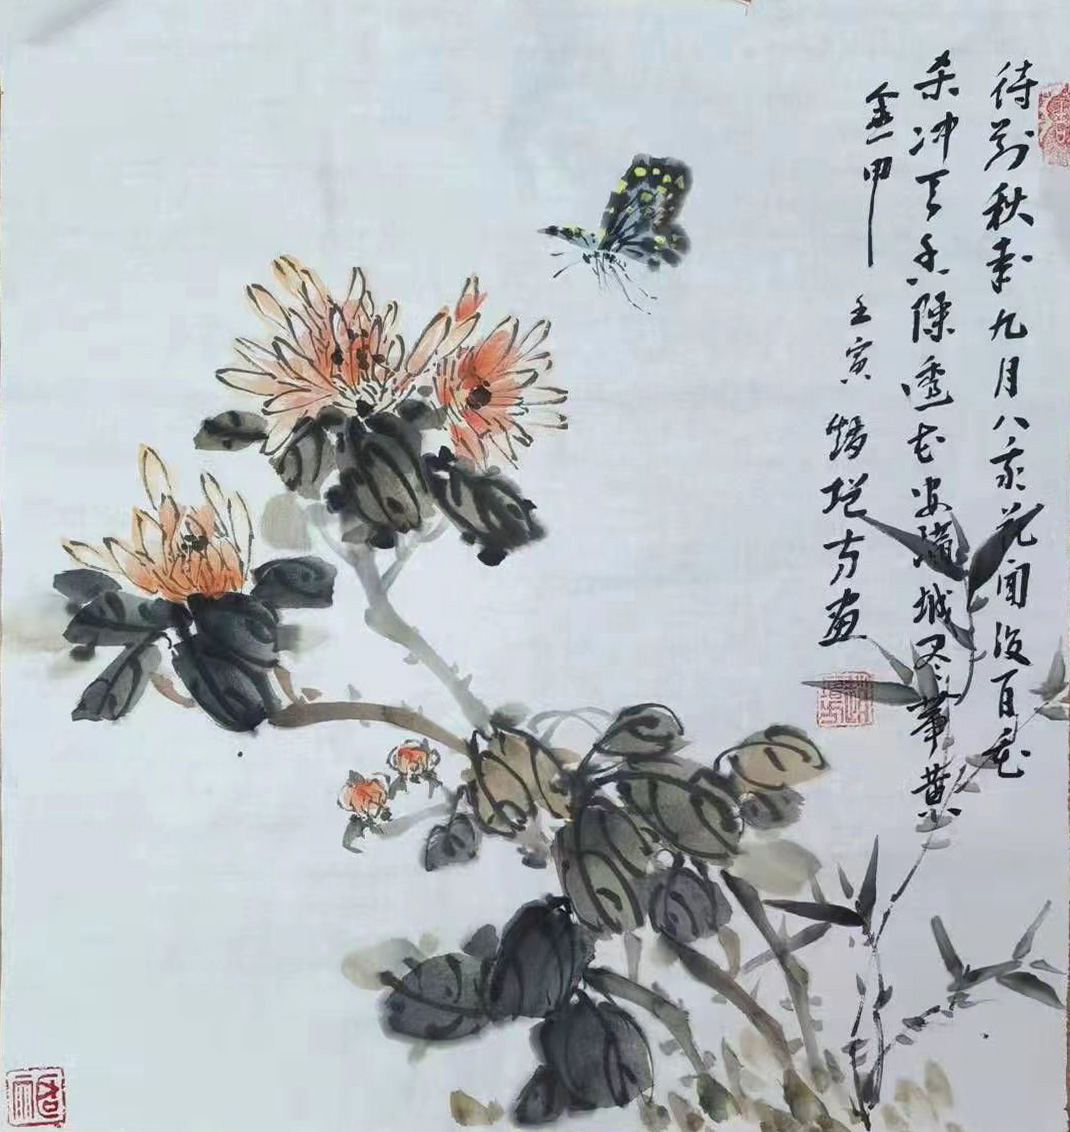 待到秋来九月八我花開後百花
杀冲天香陣透长安满城尽带黄
金甲
壬寅 方画